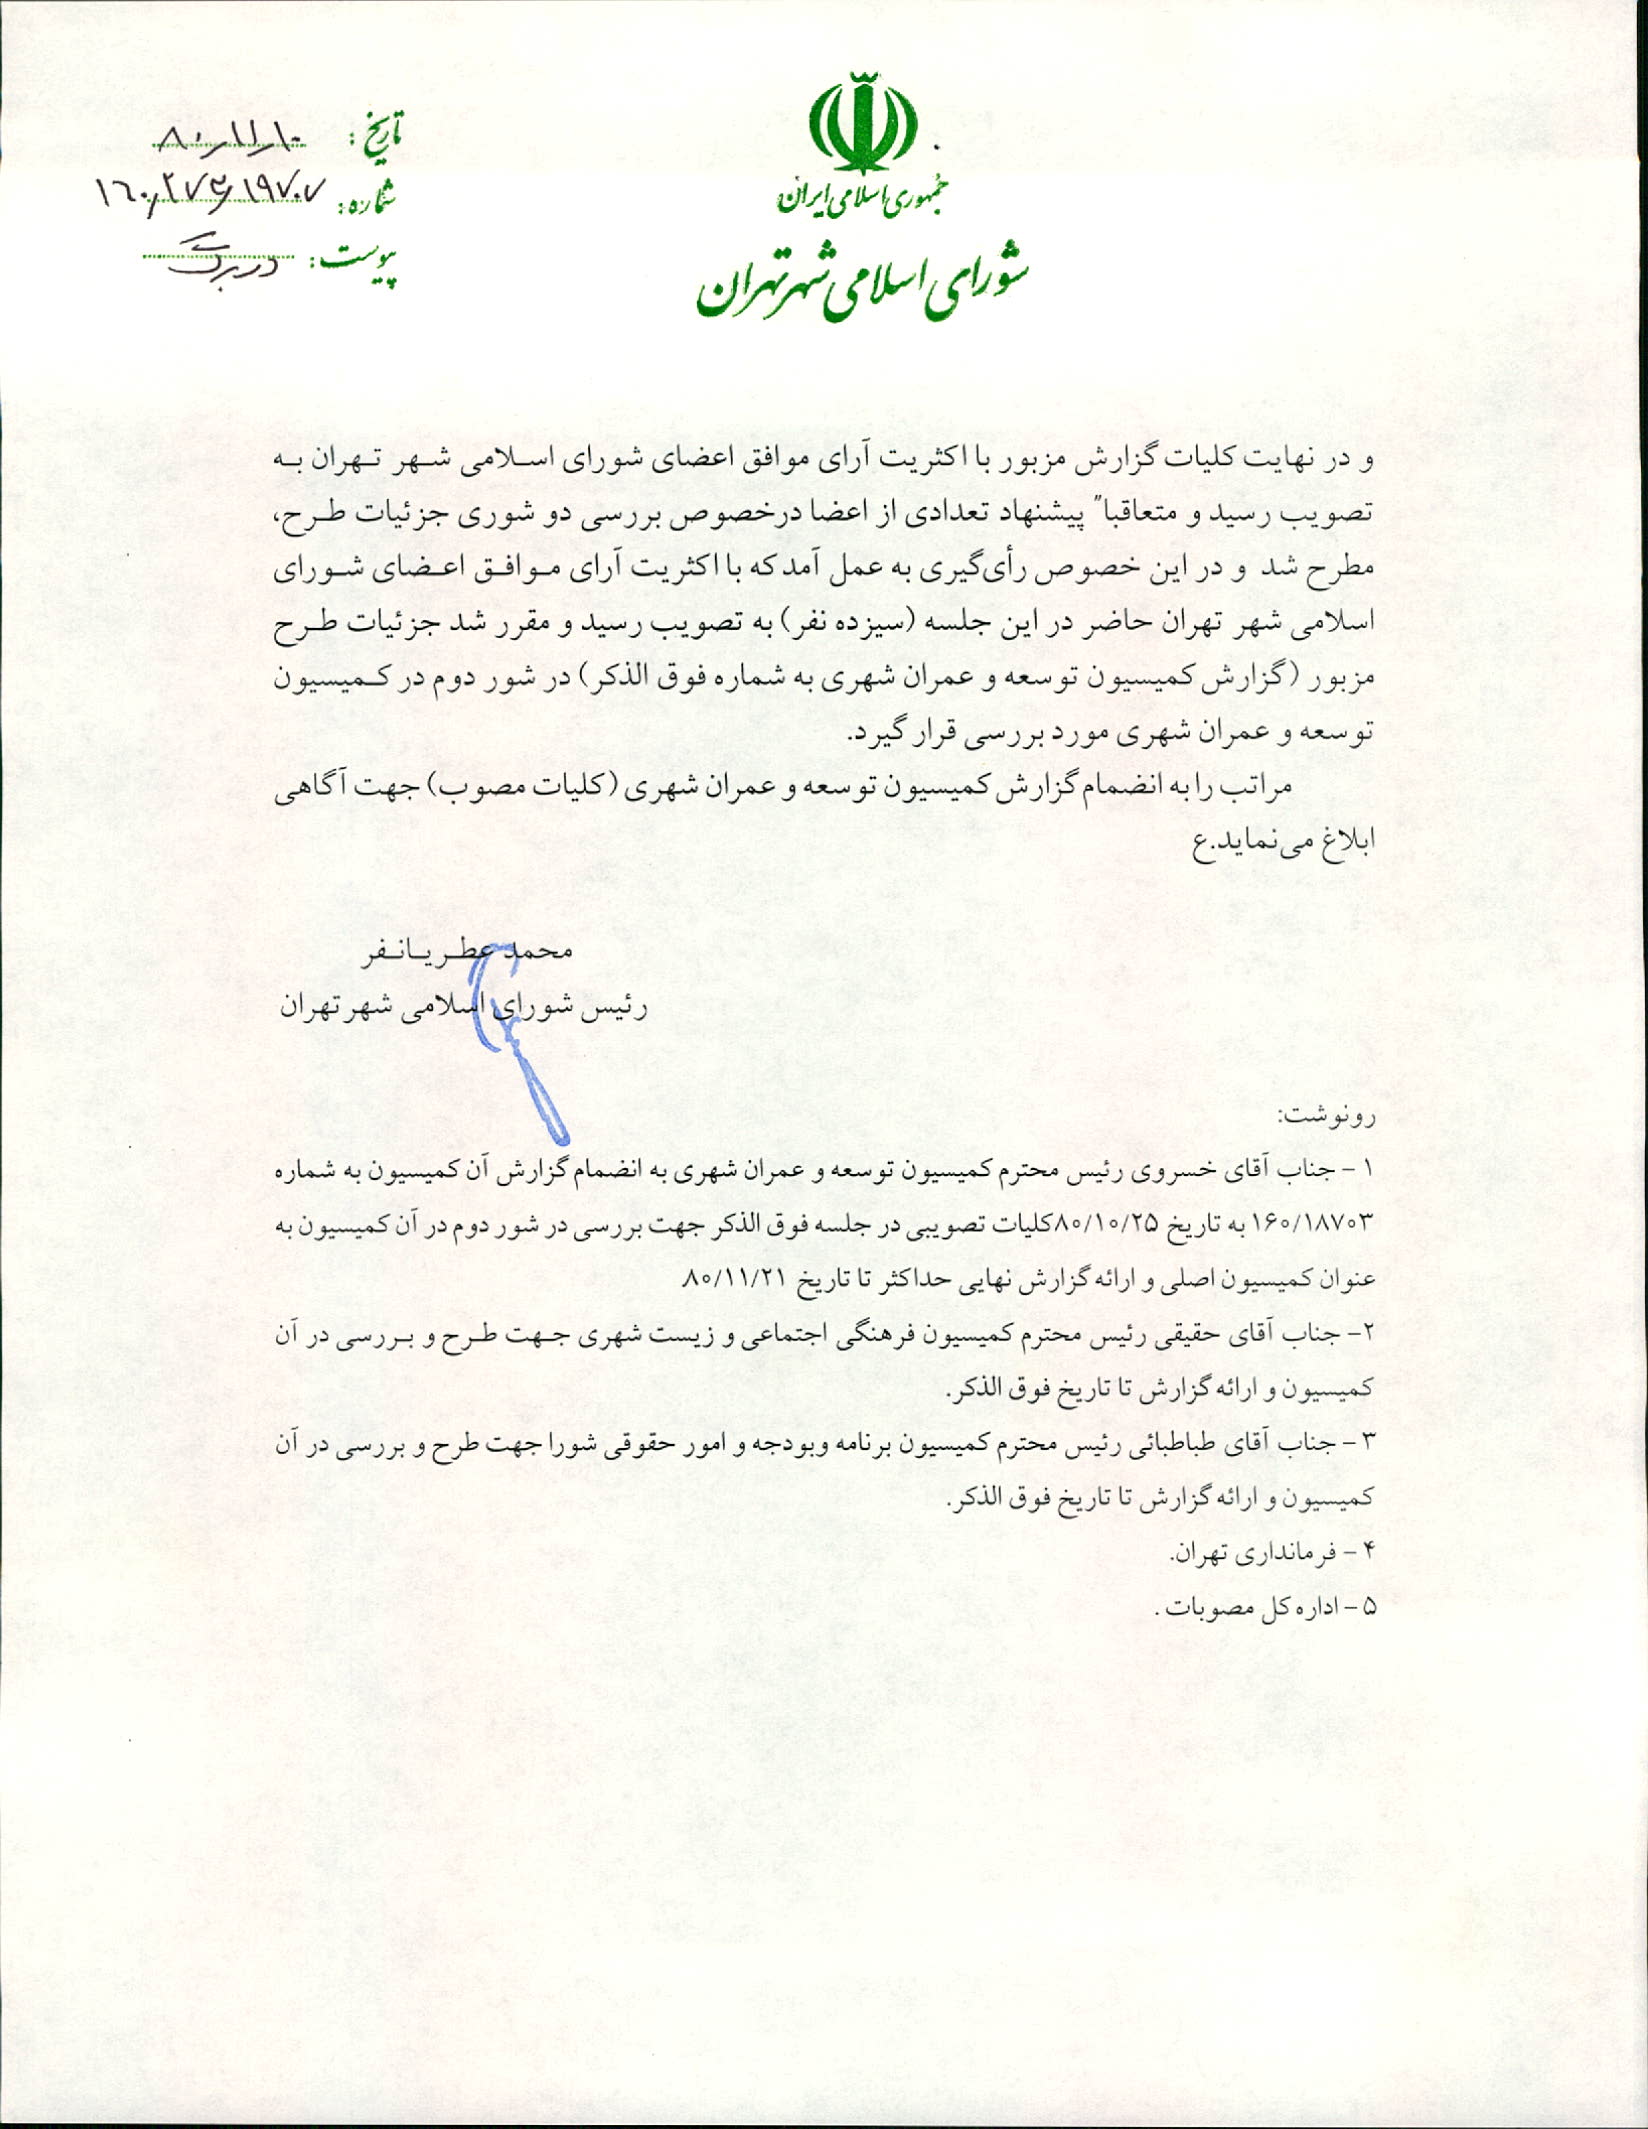 جمهوری اسلامی ایران
شورای اسلامی شهر تهران
تاریخ: ۸۰/۱۱/۱۰
شماره: ۱۶۰/۲۷۶/۱۹۷۰۷
پیوست:
و در نهایت کلیات گزارش مزبور با اکثریت آرای موافق اعضای شورای اسلامی شهر تهران به
تصویب رسید و متعاقبا" پیشنهاد تعدادی از اعضا درخصوص بررسی دو شوری جزئیات طرح،
مطرح شد و در این خصوص رأی‌گیری به عمل آمد که با اکثریت آرای موافق اعضای شورای
اسلامی شهر تهران حاضر در این جلسه (سیزده نفر) به تصویب رسید و مقرر شد جزئیات طرح
مزبور (گزارش کمیسیون توسعه و عمران شهری به شماره فوق الذکر) در شور دوم در کمیسیون
توسعه و عمران شهری مورد بررسی قرار گیرد.
مراتب را به انضمام گزارش کمیسیون توسعه و عمران شهری (کلیات مصوب) جهت آگاهی
ابلاغ می‌نماید.ع
محمد عطریانفر
رئیس شورای اسلامی شهر تهران
رونوشت:
۱ - جناب آقای خسروی رئیس محترم کمیسیون توسعه و عمران شهری به انضمام گزارش آن کمیسیون به شماره
۱۶۰/۱۸۷۰۳ به تاریخ ۸۰/۱۰/۲۵ کلیات تصویبی در جلسه فوق الذکر جهت بررسی در شور دوم در آن کمیسیون به
عنوان کمیسیون اصلی و ارائه گزارش نهایی حداکثر تا تاریخ ۸۰/۱۱/۲۱
۲- جناب آقای حقیقی رئیس محترم کمیسیون فرهنگی اجتماعی و زیست شهری جهت طرح و بررسی در آن
کمیسیون و ارائه گزارش تا تاریخ فوق الذکر.
۳ - جناب آقای طباطبائی رئیس محترم کمیسیون برنامه وبودجه و امور حقوقی شورا جهت طرح و بررسی در آن
کمیسیون و ارائه گزارش تا تاریخ فوق الذکر.
۴ - فرمانداری تهران.
۵ - اداره کل مصوبات .